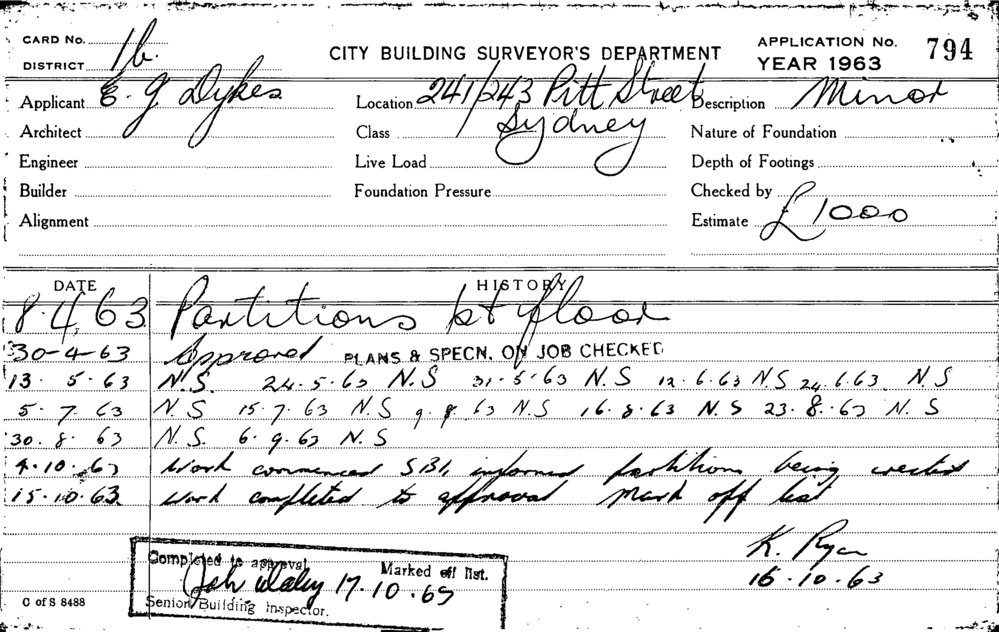 CARD No.
DISTRICT 1b.
CITY BUILDING SURVEYOR'S DEPARTMENT
APPLICATION No. 794
YEAR 1963
Applicant E. G Dykes
Location 241/243 Pitt Street
Sydney
Description Minor
Architect
Class
Nature of Foundation
Engineer
Live Load
Depth of Footings
Builder
Foundation Pressure
Checked by
Alignment
Estimate £1000
DATE HISTORY
8.4.63 Partitions 1st floor
30-4-63 Approved PLANS & SPECN. ON JOB CHECKED
13. 5.63 N.S. 24.5.63 N.S 31.5.63 N.S 12.6.63 N.S 24.6.63. N.S
5. 7. 63 N.S 15.7.63 N.S 9.8.63 N.S 16.8.63 N.S 23.8.63 N.S
30. 8. 63 N.S. 6.9.63 N.S
4.10.63 Work commenced informed partitions being erected
15.10.63 Work completed to approval mark off list
K. Ryan
16.10.63
Completed to approval Marked off list.
Daley 17.10.63
Senior Building Inspector.
C of S 8488